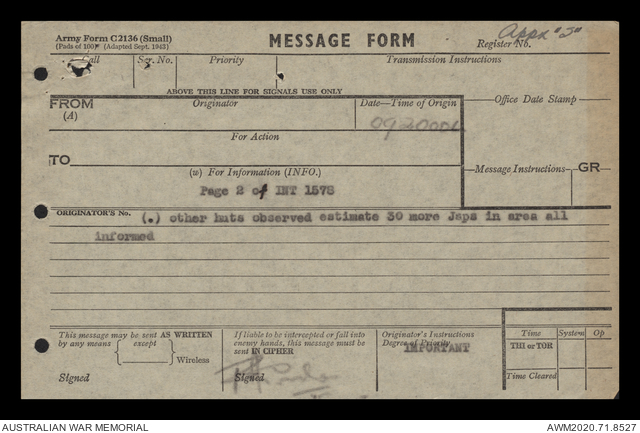 Army Form C2136 (Small)
(Pads of 100) (Adapted Sept. 1943)
MESSAGE FORM
Appx "J"
Register No.
Call
Ser. No.
Priority
Transmission Instructions
ABOVE THIS LINE FOR SIGNALS USE ONLY
FROM
(A)
Originator
Date—Time of Origin
092000L
Office Date Stamp
For Action
TO
(w) For Information (INFO.)
Message Instructions
GR
Page 2 of INT 1578
ORIGINATOR'S No.
(.) other huts observed estimate 30 more Japs in area all
informed
This message may be sent AS WRITTEN
by any means except
Wireless
Signed
If liable to be intercepted or fall into
enemy hands, this message must be
sent IN CIPHER
Signed
Originator's Instructions
Degree of Priority
IMPORTANT
Time
System
Op
THI or TOR
Time Cleared
AUSTRALIAN WAR MEMORIAL
AWM2020.71.8527